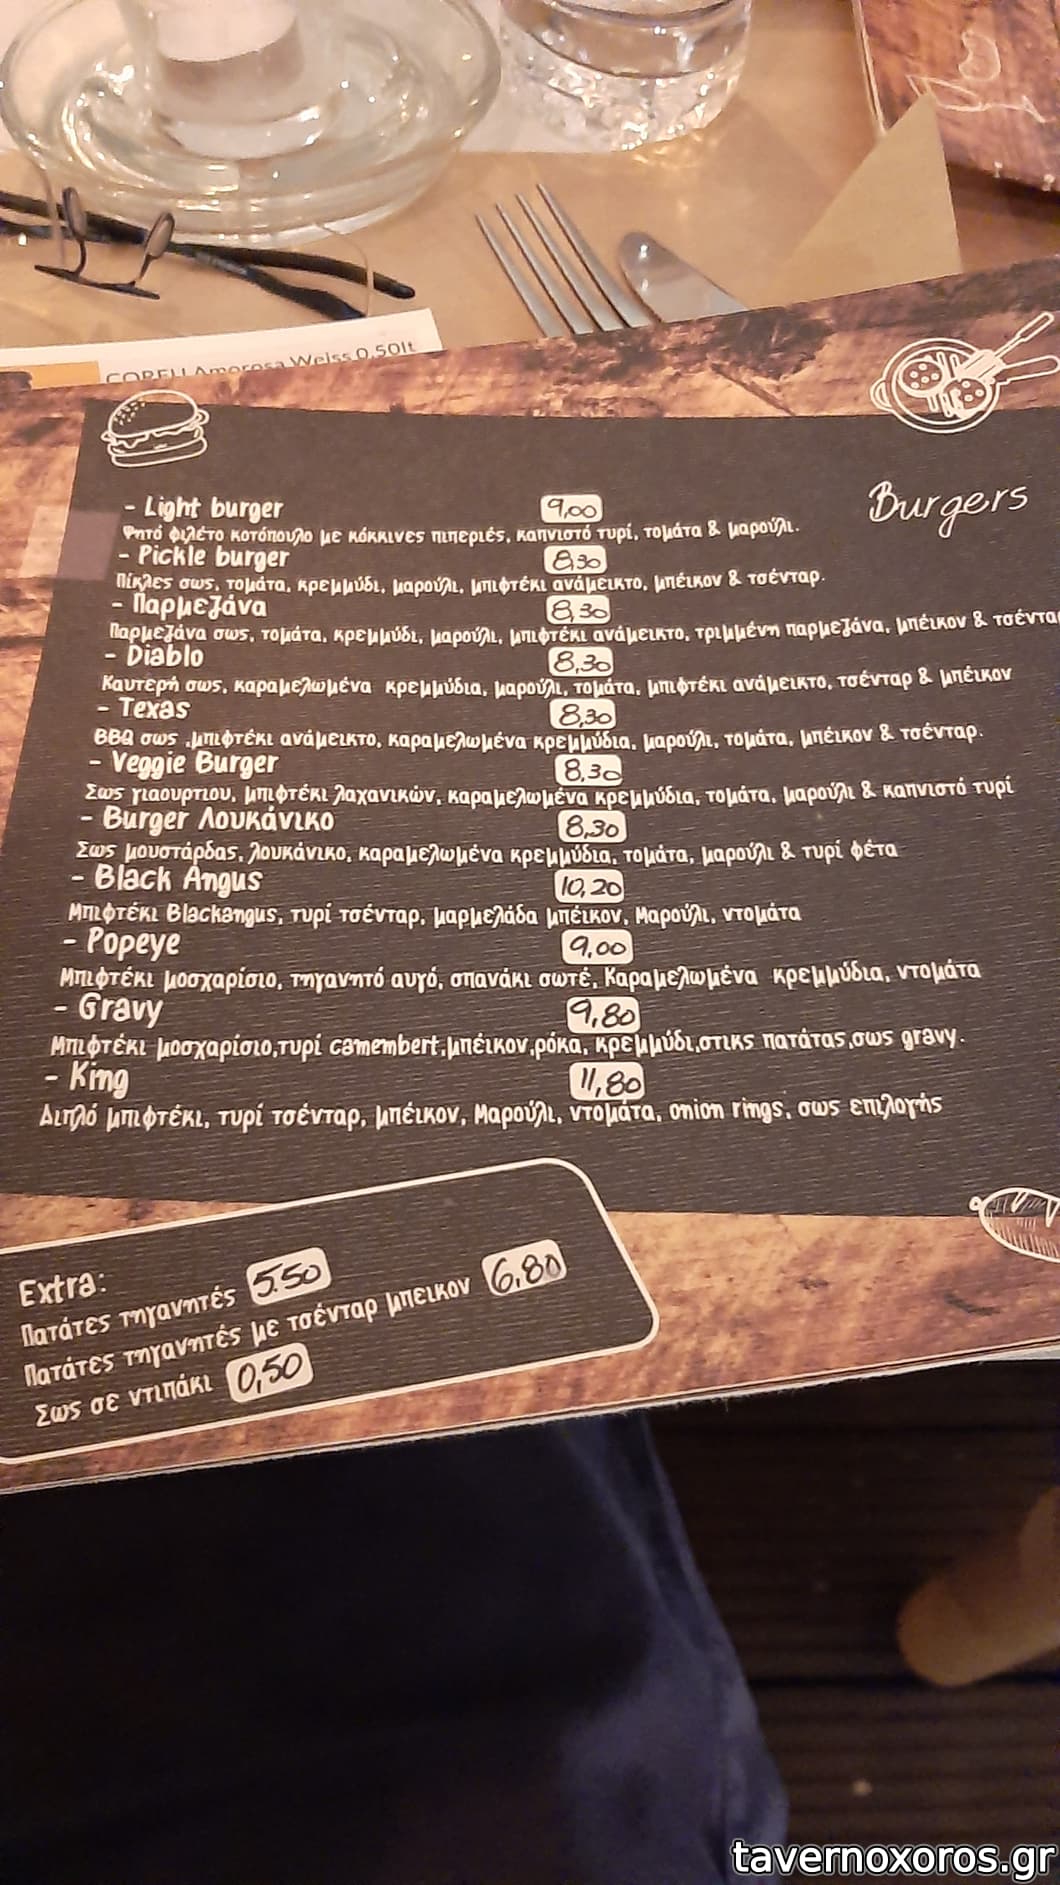 CORFU Amorosa Weiss 0,50lt
Burgers
- Light burger 9,00
Ψητό φιλέτο κοτόπουλο με κόκκινες πιπεριές, καπνιστό τυρί, τομάτα & μαρούλι.
- Pickle burger 8,30
Πίκλες σως, τομάτα, κρεμμύδι, μαρούλι, μπιφτέκι ανάμεικτο, μπέικον & τσένταρ.
- Παρμεζάνα 8,30
Παρμεζάνα σως, τομάτα, κρεμμύδι, μαρούλι, μπιφτέκι ανάμεικτο, τριμμένη παρμεζάνα, μπέικον & τσέντα
- Diablo 8,30
Καυτερή σως, καραμελωμένα κρεμμύδια, μαρούλι, τομάτα, μπιφτέκι ανάμεικτο, τσένταρ & μπέικον
- Texas 8,30
BBQ σως ,μπιφτέκι ανάμεικτο, καραμελωμένα κρεμμύδια, μαρούλι, τομάτα, μπέικον & τσένταρ.
- Veggie Burger 8,30
Σως γιαουρτιου, μπιφτέκι λαχανικών, καραμελωμένα κρεμμύδια, τομάτα, μαρούλι & καπνιστό τυρί
- Burger Λουκάνικο 8,30
Σως μουστάρδας, λουκάνικο, καραμελωμένα κρεμμύδια, τομάτα, μαρούλι & τυρί φέτα
- Black Angus 10,20
Μπιφτέκι Blackangus, τυρί τσένταρ, μαρμελάδα μπέικον, Μαρούλι, ντομάτα
- Popeye 9,00
Μπιφτέκι μοσχαρίσιο, τηγανητό αυγό, σπανάκι σωτέ, Καραμελωμένα κρεμμύδια, ντομάτα
- Gravy 9,80
Μπιφτέκι μοσχαρίσιο,τυρί camembert,μπέικον,ρόκα, κρεμμύδι,στικς πατάτας,σως gravy.
- King 11,80
Διπλό μπιφτέκι, τυρί τσένταρ, μπέικον, Μαρούλι, ντομάτα, onion rings, σως επιλογής
Extra:
Πατάτες τηγανητές 5.50
Πατάτες τηγανητές με τσένταρ μπεικον 6,80
Σως σε ντιπάκι 0,50
tavernoxoros.gr